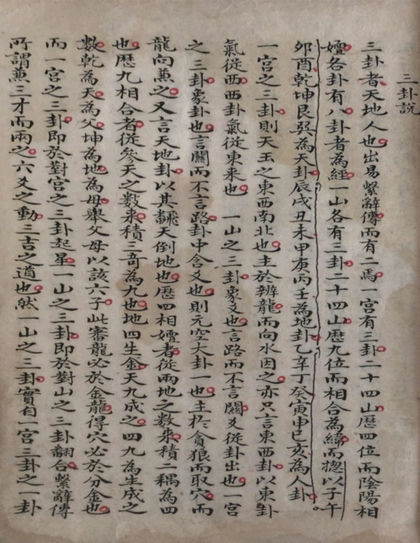 三卦說
三卦者天地人也出易繫辭傳而有二焉一宮有三卦二十四山歷四位而陰陽相
嬗各卦有八卦者為經一山各有三卦二十四山歷九位而相合為緯而揔以子午
卯酉乾坤艮巽為天卦辰戌丑未甲庚丙壬為地卦乙辛丁癸寅申巳亥為人卦
一宮之三卦則天玉之東西南北也主於辨龍而向水因之亦只言東西卦以東卦
氣從西西卦氣從東來也 一山之三卦象爻也言路而不言關爻從卦出也一宮
之三卦象卦也言關而不言路卦中含爻也則元空大卦一也主於貪狼而取穴而
龍向兼之又言天地卦以其翻天倒地也歷四相嬗者從兩地之數來積二稱為四
也歷九相合者從參天之數來積三奇為九也地四生金天九成之四九為生成之
數乾為天為父坤為地為母舉父母以該六子此審龍必於金龍得穴必於分金也
而一宮之三卦即於對宮之三卦起星一山之三卦即於對山之三卦翻合繫辭傳
所謂兼三才而兩之六爻之動三吉之道也然一山之三卦實自一宮三卦之一卦